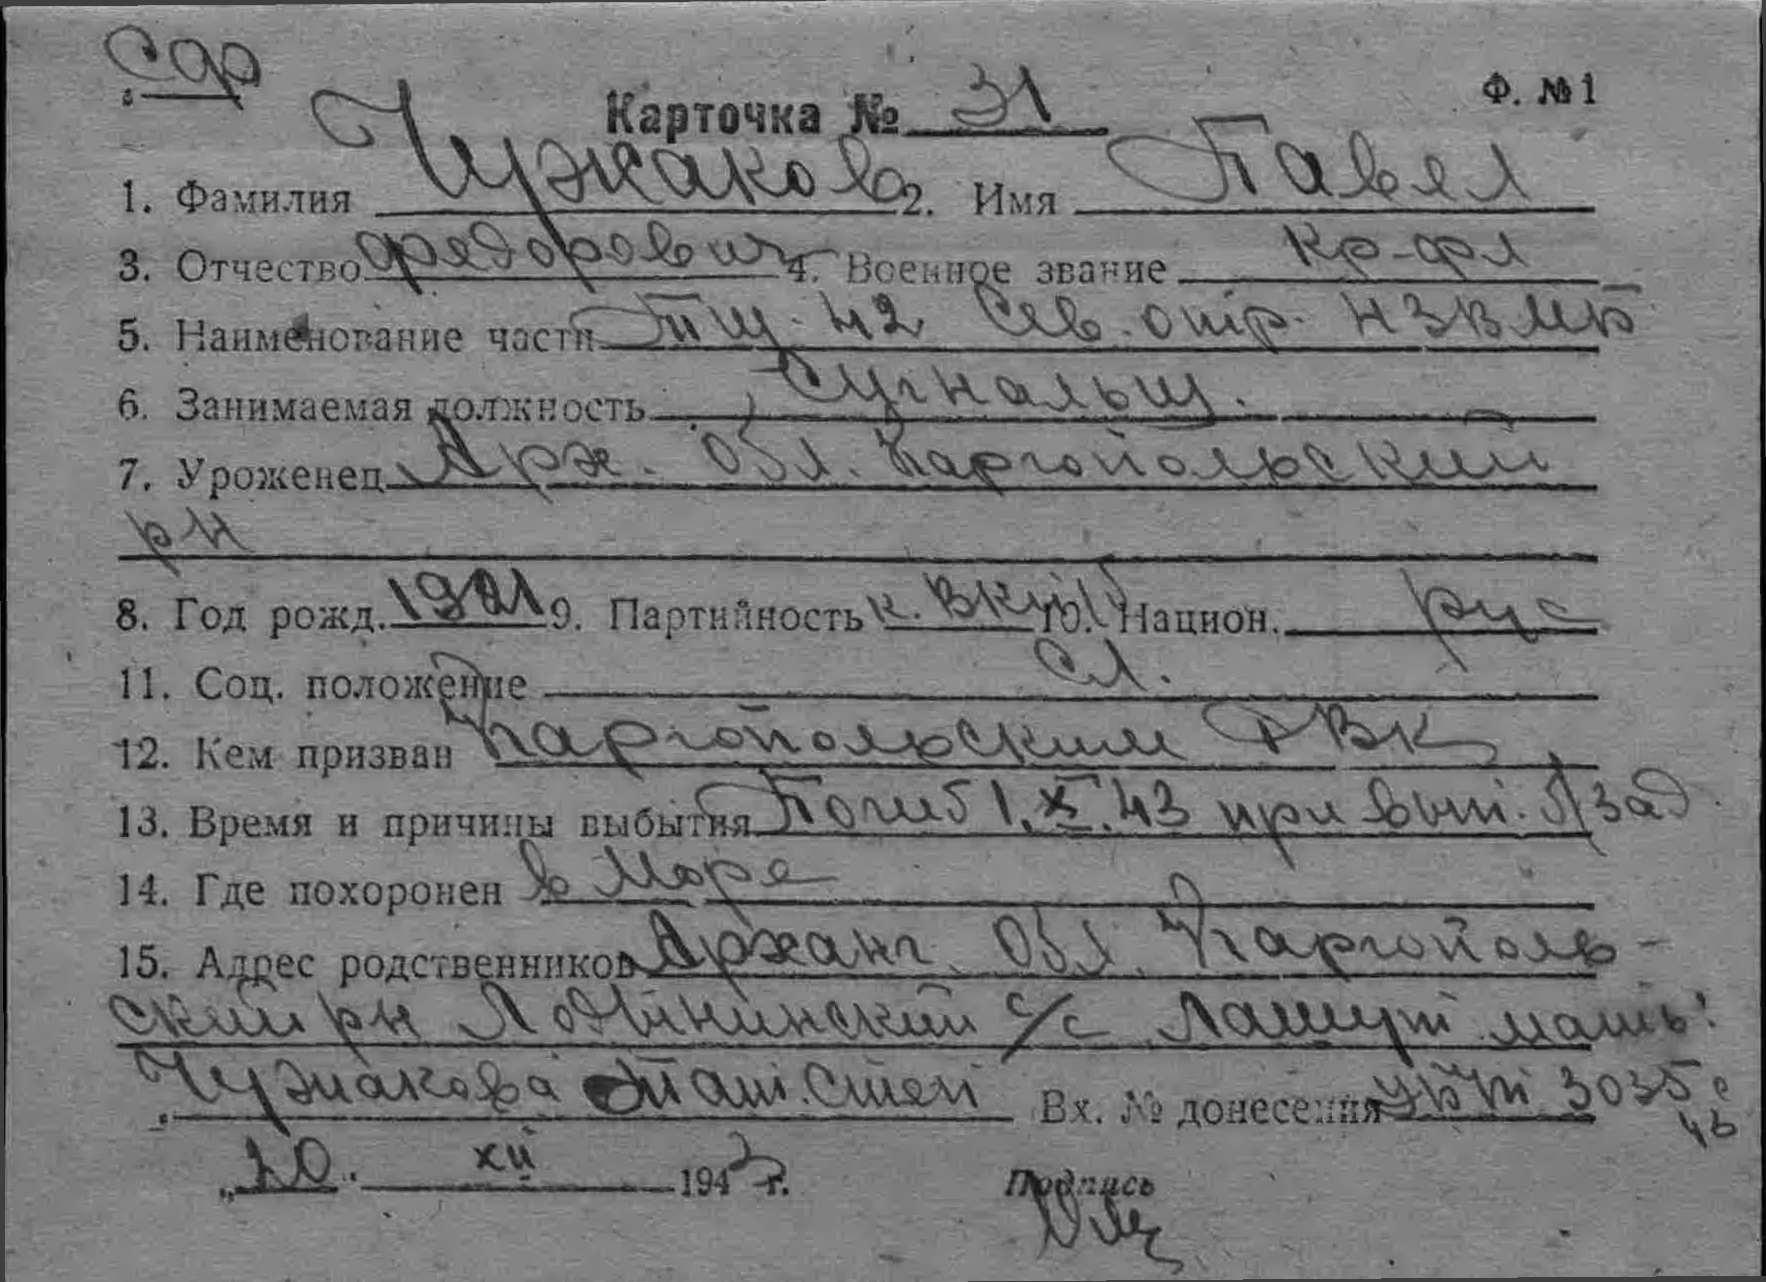 Сдр
Карточка № 31 Ф. №1
1. Фамилия Чужаков 2. Имя Павел
3. Отчество Федорович 4. Военное звание кр-фл
5. Наименование части ТЩ-42 Сев. отр. НЗВМБ
6. Занимаемая должность Сигнальщ.
7. Уроженец Арх. Обл. Каргопольский
рн
8. Год рожд. 1921 9. Партийность к. ВКП/б 10. Национ. рус
11. Соц. положение сл.
12. Кем призван Каргопольским РВК
13. Время и причины выбытия Погиб 1.X.43 при вып. б/зад.
14. Где похоронен в море
15. Адрес родственников Арханг. Обл. Каргополь-
ский рн с/с мать:
Чужакова Тат. Степ Вх. № донесения 3035 с
20. XII 1943 г. Подпись